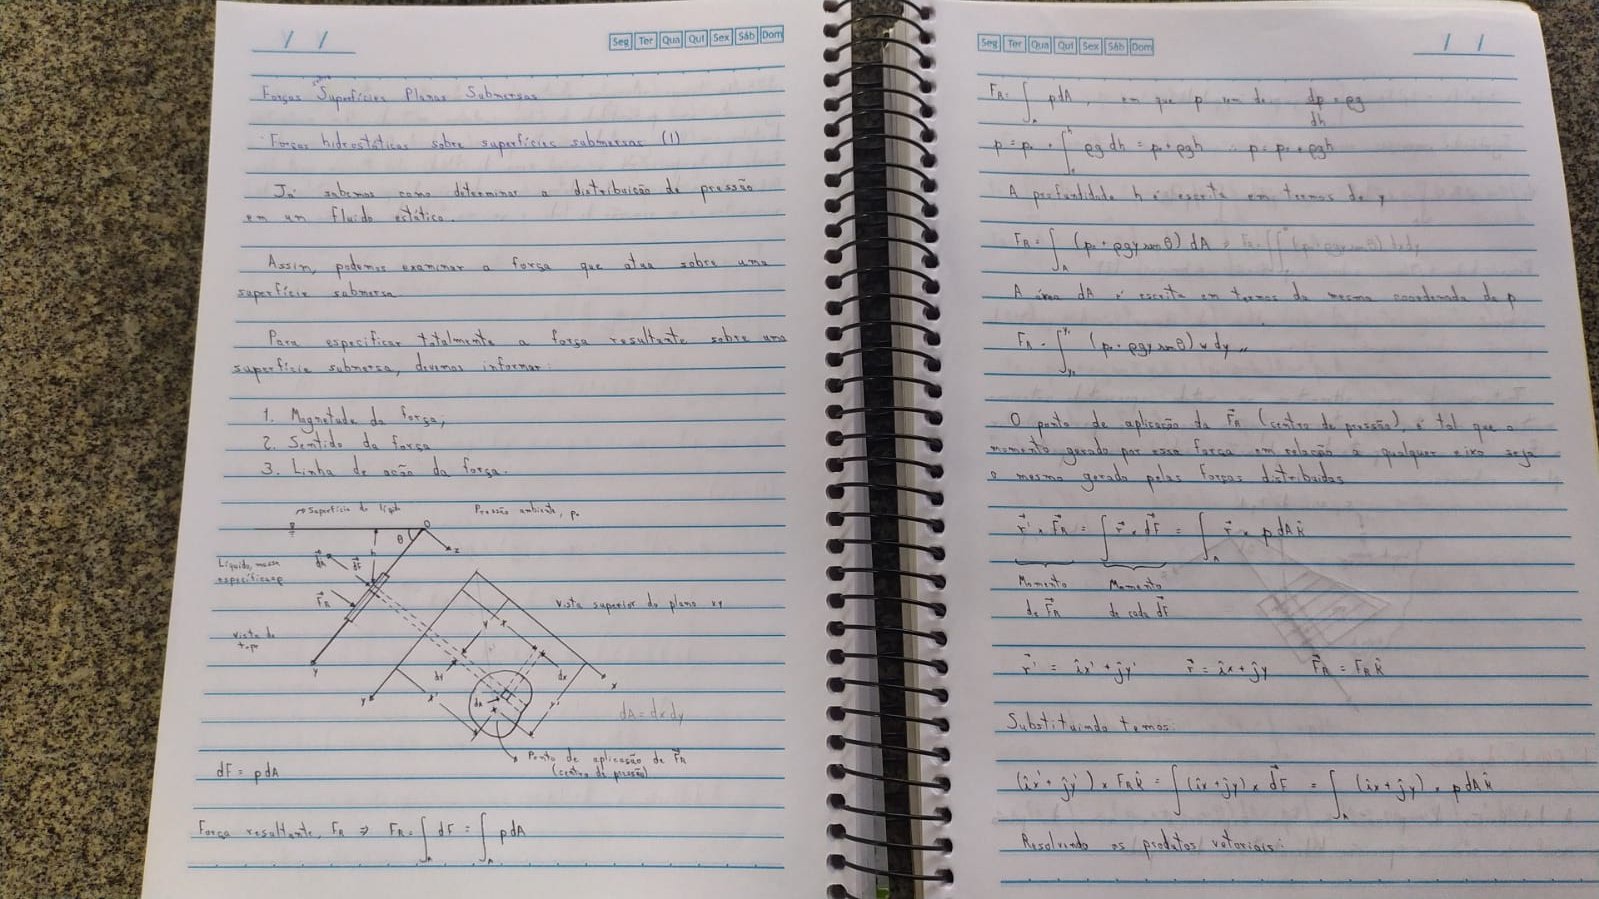 / /
Seg Ter Qua Qui Sex Sáb Dom
sobre
Forças Superfícies Planas Submersas
Forças hidrostáticas sobre superfícies submersas (1)
Já sabemos como determinar a distribuição de pressão
em um fluido estático.
Assim, podemos examinar a força que atua sobre uma
superfície submersa
Para especificar totalmente a força resultante sobre uma
superfície submersa, devemos informar:
1. Magnetude da força;
2. Sentido da força
3. Linha de ação da força.
Superfície do líqdo
Pressão ambiente, p₀
θ
O
z
h
Líquido, massa
específica = ρ
dA⃗
dF⃗
F⃗R
vista de
topo
y
vista superior do plano xy
y
x
dy
dx
x'
dA
y'
x
y
dA = dx dy
Ponto de aplicação de F⃗R
(centro de pressão)
dF = pdA
Força resultante, FR ⇒ FR = ∫ dF = ∫A pdA
Seg Ter Qua Qui Sex Sáb Dom
/ /
FR = ∫A pdA, em que p vem de dp/dh = ρg
p = p₀ + ∫ ρg dh = p₀ + ρgh ∴ p = p₀ + ρgh
A profundidade h é escrita em termos de y
FR = ∫A (p₀ + ρgy sen θ) dA ⇒ FR = ∫∫ (p₀ + ρgy sen θ) dxdy
A área dA é escrita em termos da mesma coordenada de p
FR = ∫ (p₀ + ρgy sen θ) w dy //
O ponto de aplicação da F⃗R (centro de pressão), é tal que o
momento gerado por essa força em relação à qualquer eixo seja
o mesmo gerado pelas forças distribuidas
r⃗' × F⃗R = ∫ r⃗ × dF⃗ = ∫A r⃗ × p dA k̂
Momento Momento
de F⃗R de cada dF⃗
r⃗' = îx' + ĵy' r⃗ = îx + ĵy F⃗R = FR k̂
Substituindo temos:
(îx' + ĵy') × FR k̂ = ∫ (îx + ĵy) × dF⃗ = ∫A (îx + ĵy) × p dA k̂
Resolvendo os produtos vetoriais: